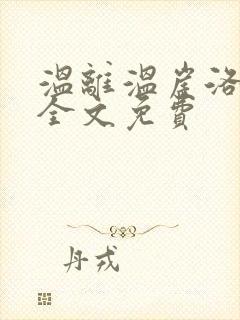 溫離溫崖洛
全文免費
丹戎